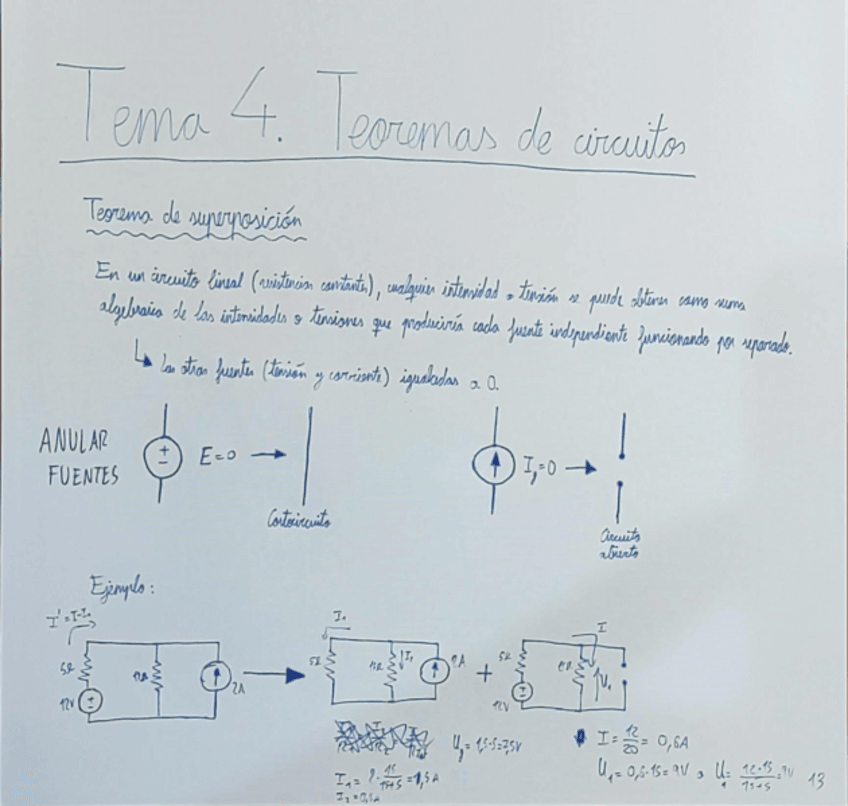 Tema 4. Teoremas de circuitos
Teorema de superposición
En un circuito lineal (resistencias constantes), cualquier intensidad o tensión se puede obtener como suma
algebraica de las intensidades o tensiones que produciría cada fuente independiente funcionando por separado.
Las otras fuentes (tensión y corriente) igualadas a 0.
ANULAR
FUENTES
E=0
Cortocircuito
I =0
Circuito
abierto
Ejemplo:
5Ω
12V
2A
5Ω
15Ω
I₁
2A
+
5Ω
12V
I
U₁
I = 12/20 = 0,6A
U₁ = 0,6·15 = 9V
= 1,5·5=7,5V
I₁ = 2· 15/15+5 = 1,5A
U₁ = 12·15/15+5 = 9V
13